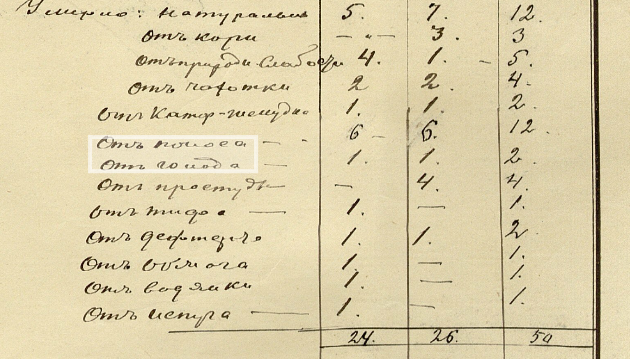 Умерло: натурально 5. 7. 12.
Отъ кори — „ — 3. 3
Отъ природн. слабости 4. 1. — 5.
Отъ чахотки 2 2. 4.
Отъ Катар-желудка 1. 1. 2.
Отъ поноса — 6 — 6. 12.
Отъ голода — 1. 1. 2.
Отъ простуды — — 4. 4.
Отъ тифа — 1. — 1.
Отъ дефтерита 1. 1. 2
Отъ 1. — 1.
Отъ водянки 1. — 1.
Отъ испуга — 1. — 1.
24. 26. 50